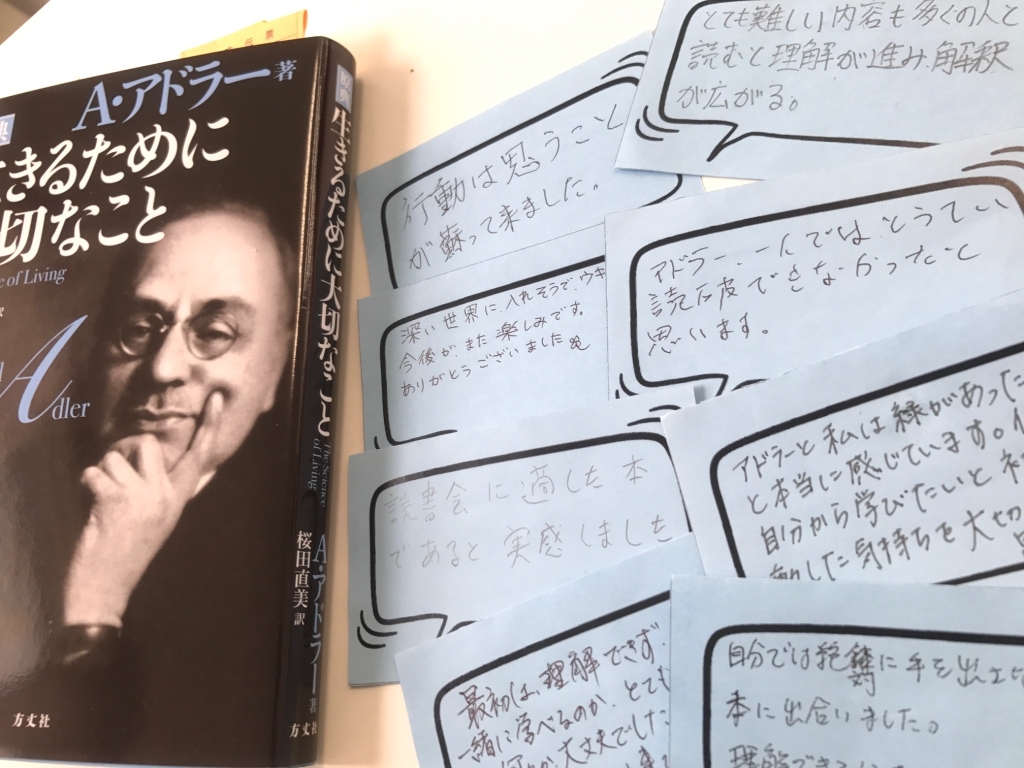 A・アドラー 著
きるために
切なこと
e of Living
Adler
方丈社
生きるために大切なこと
The Science of Living
A・アドラー 著
桜田直美 訳
方丈社
とても難しい内容も多くの人と
読むと理解が進み、解釈
が広がる。
行動は思うこと
が蘇って来ました。
アドラー、一人では、とうてい
読破できなかったと
思います。
深い世界に、入れそうで、ウキ
今後が、また楽しみです。
ありがとうございました
読書会に適した本
であると実感しました
アドラーと私は縁があった
と本当に感じています。
自分から学びたいと
動した気持ちを大切
最初は、理解できず、
一緒に学べるのか、とても
大丈夫でした
自分では絶対に手を出さな
本に出合いました。
理解できる